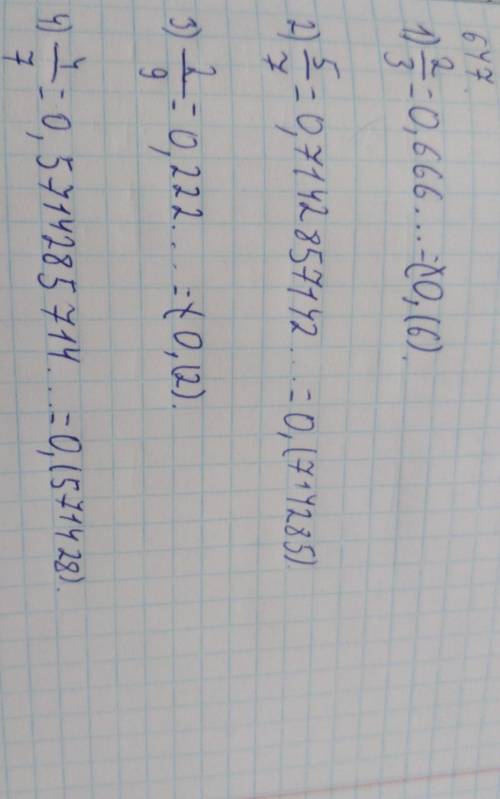 647.
1) 2/3 = 0,666... = (0,(6).
2) 5/7 = 0,7142857142... = 0,(714285).
3) 2/9 = 0,222.... = (0,(2).
4) 4/7 = 0,5714285714.... = 0,(571428).